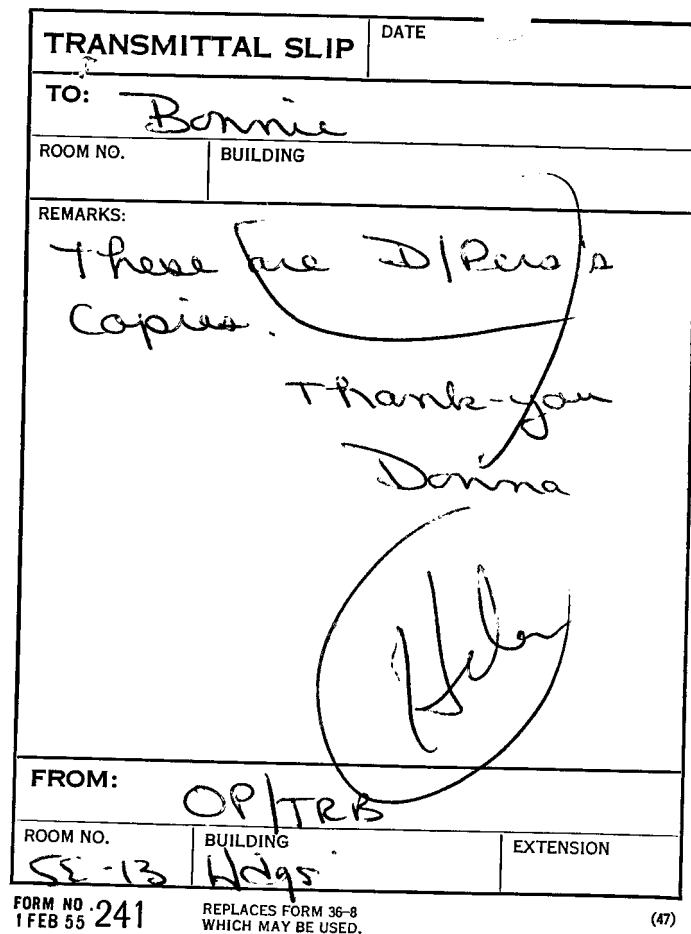 TRANSMITTAL SLIP
DATE
TO:
Bonnie
ROOM NO.
BUILDING
REMARKS:
These are D/Pers's
Copies.
Thank-you
Donna
Helen
FROM:
OP/TRB
ROOM NO.
BUILDING
EXTENSION
5E-13
Hdqs
FORM NO. 241
1 FEB 55
REPLACES FORM 36-8
WHICH MAY BE USED.
(47)